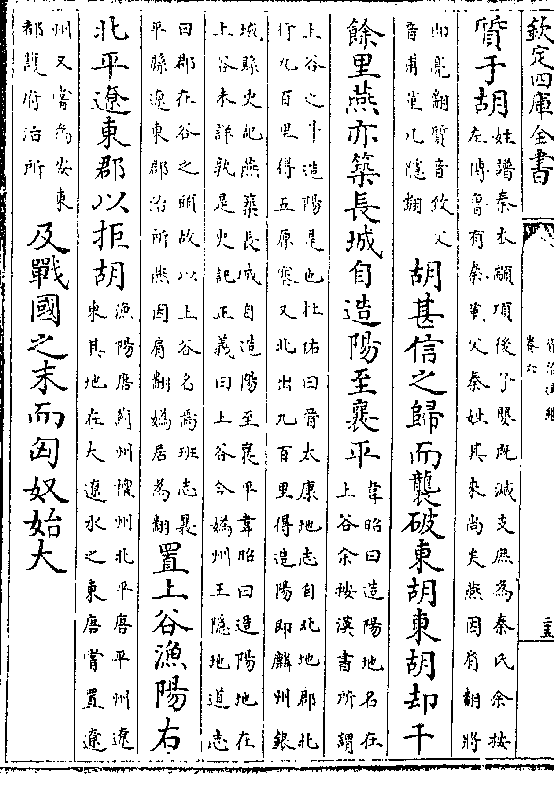 欽定四庫全書
資治通鑑
卷六
質于胡
姓譜秦本顓頊後子嬰既滅支庶為秦氏余按
左傳魯有秦堇父秦姓其來尚矣燕因肩翻將
即亮翻質音致父
音甫堇几隱翻
胡甚信之歸而襲破東胡東胡却千
餘里燕亦築長城自造陽至襄平
韋昭曰造陽地名在
上谷余按漢書所謂
上谷之斗造陽是也杜佑曰晉太康地志自北地郡北
行九百里得五原塞又北出九百里得造陽即麟州銀
城縣史記燕築長城自造陽至襄平韋昭曰造陽地在
上谷未詳孰是史記正義曰上谷今媯州王隱地道志
曰郡在谷之頭故以上谷名焉班志襄
平縣遼東郡治所燕因肩翻媯居為翻
置上谷漁陽右
北平遼東郡以拒胡
漁陽唐薊州檀州北平唐平州遼
東其地在大遼水之東唐嘗置遼
州又嘗為安東
都護府治所
及戰國之末而匈奴始大